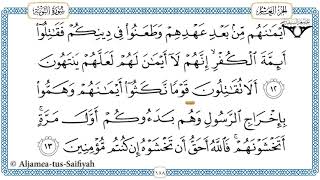 الجزء العاشر
سورة التوبة
أَيْمَٰنَهُم مِّنۢ بَعْدِ عَهْدِهِمْ وَطَعَنُوا۟ فِى دِينِكُمْ فَقَٰتِلُوٓا۟
أَئِمَّةَ ٱلْكُفْرِ ۙ إِنَّهُمْ لَآ أَيْمَٰنَ لَهُمْ لَعَلَّهُمْ يَنتَهُونَ
١٢ أَلَا تُقَٰتِلُونَ قَوْمًا نَّكَثُوٓا۟ أَيْمَٰنَهُمْ وَهَمُّوا۟
بِإِخْرَاجِ ٱلرَّسُولِ وَهُم بَدَءُوكُمْ أَوَّلَ مَرَّةٍ ۚ
أَتَخْشَوْنَهُمْ ۚ فَٱللَّهُ أَحَقُّ أَن تَخْشَوْهُ إِن كُنتُم مُّؤْمِنِينَ ١٣
١٨٨
© Aljamea-tus-Saifiyah